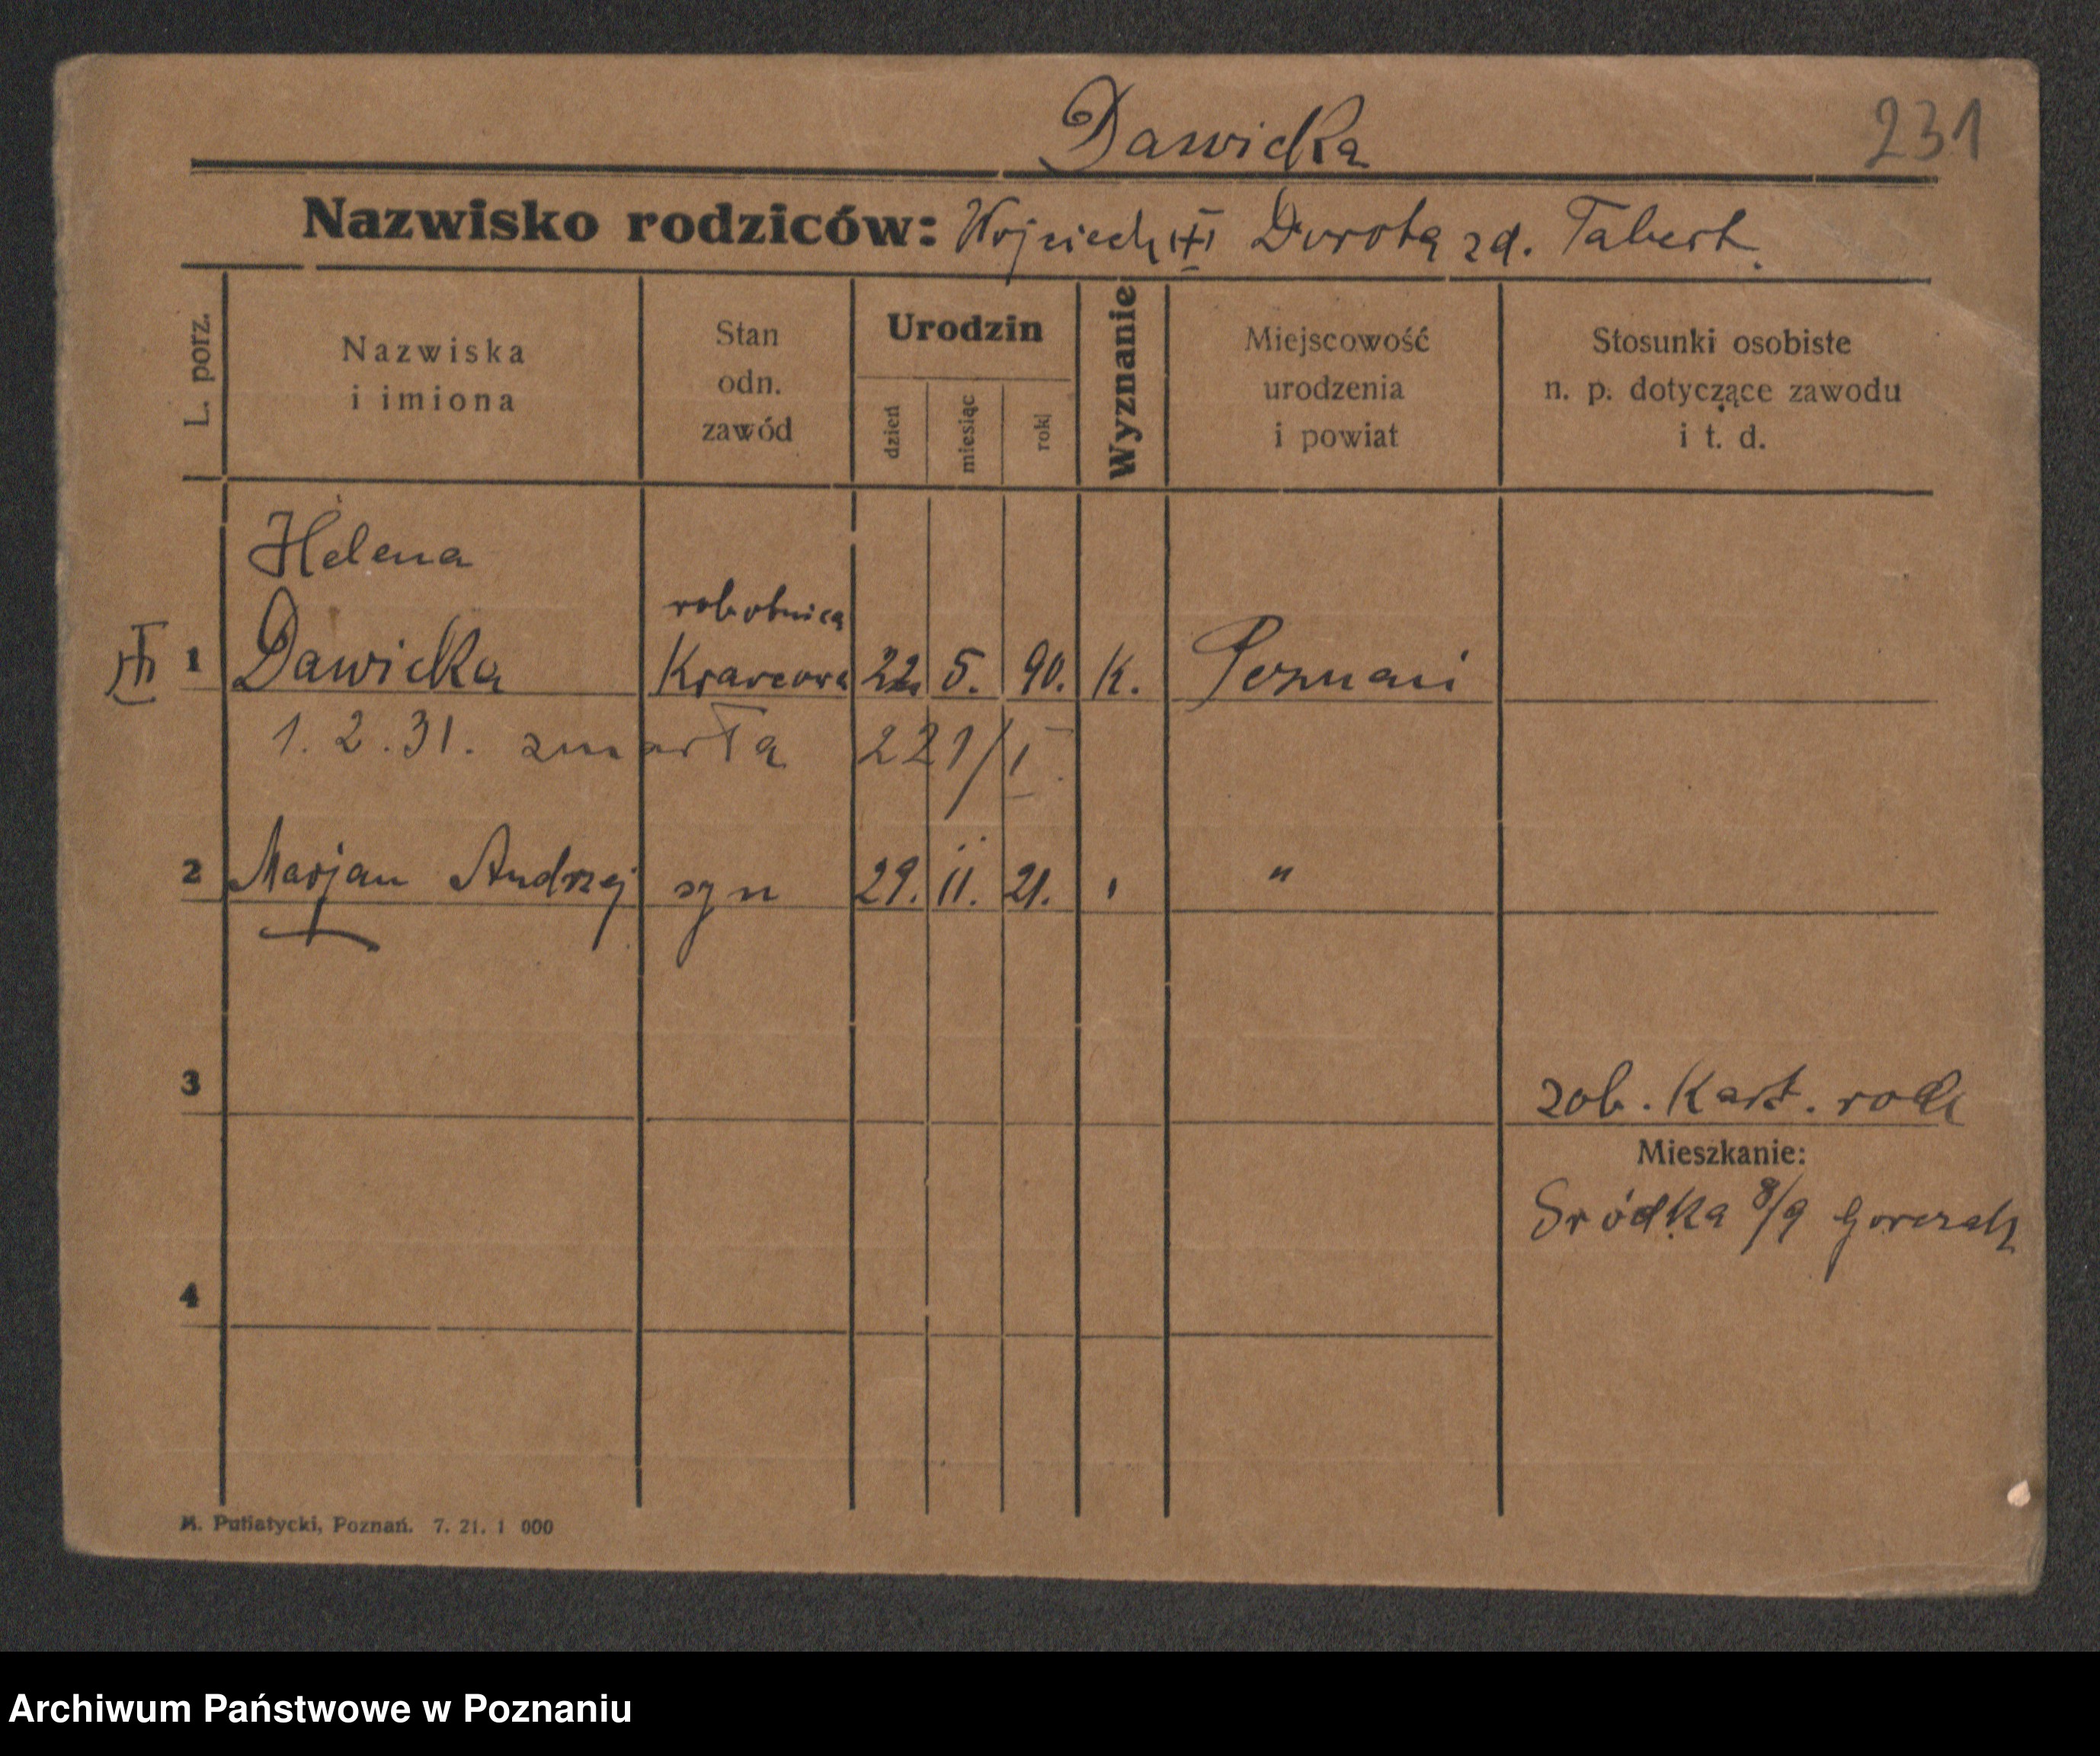 Dawicka
231
Nazwisko rodziców: Wojciech Dorota zd. Tabert.
L. porz.
Nazwiska
i imiona
Stan
odn.
zawód
Urodzin
dzień
miesiąc
rok
Wyznanie
Miejscowość
urodzenia
i powiat
Stosunki osobiste
n. p. dotyczące zawodu
i t. d.
Helena
robotnica
1 Dawicka Krawcowa 22 5. 90. K. Poznań
1. 2. 31. zmarła 221/I
2 Marjan Andrzej syn 29. 11. 21. "
3
zob. Kart. rodz
Mieszkanie:
Sródka 8/9
4
M. Putiatycki, Poznań. 7. 21. 1 000
Archiwum Państwowe w Poznaniu